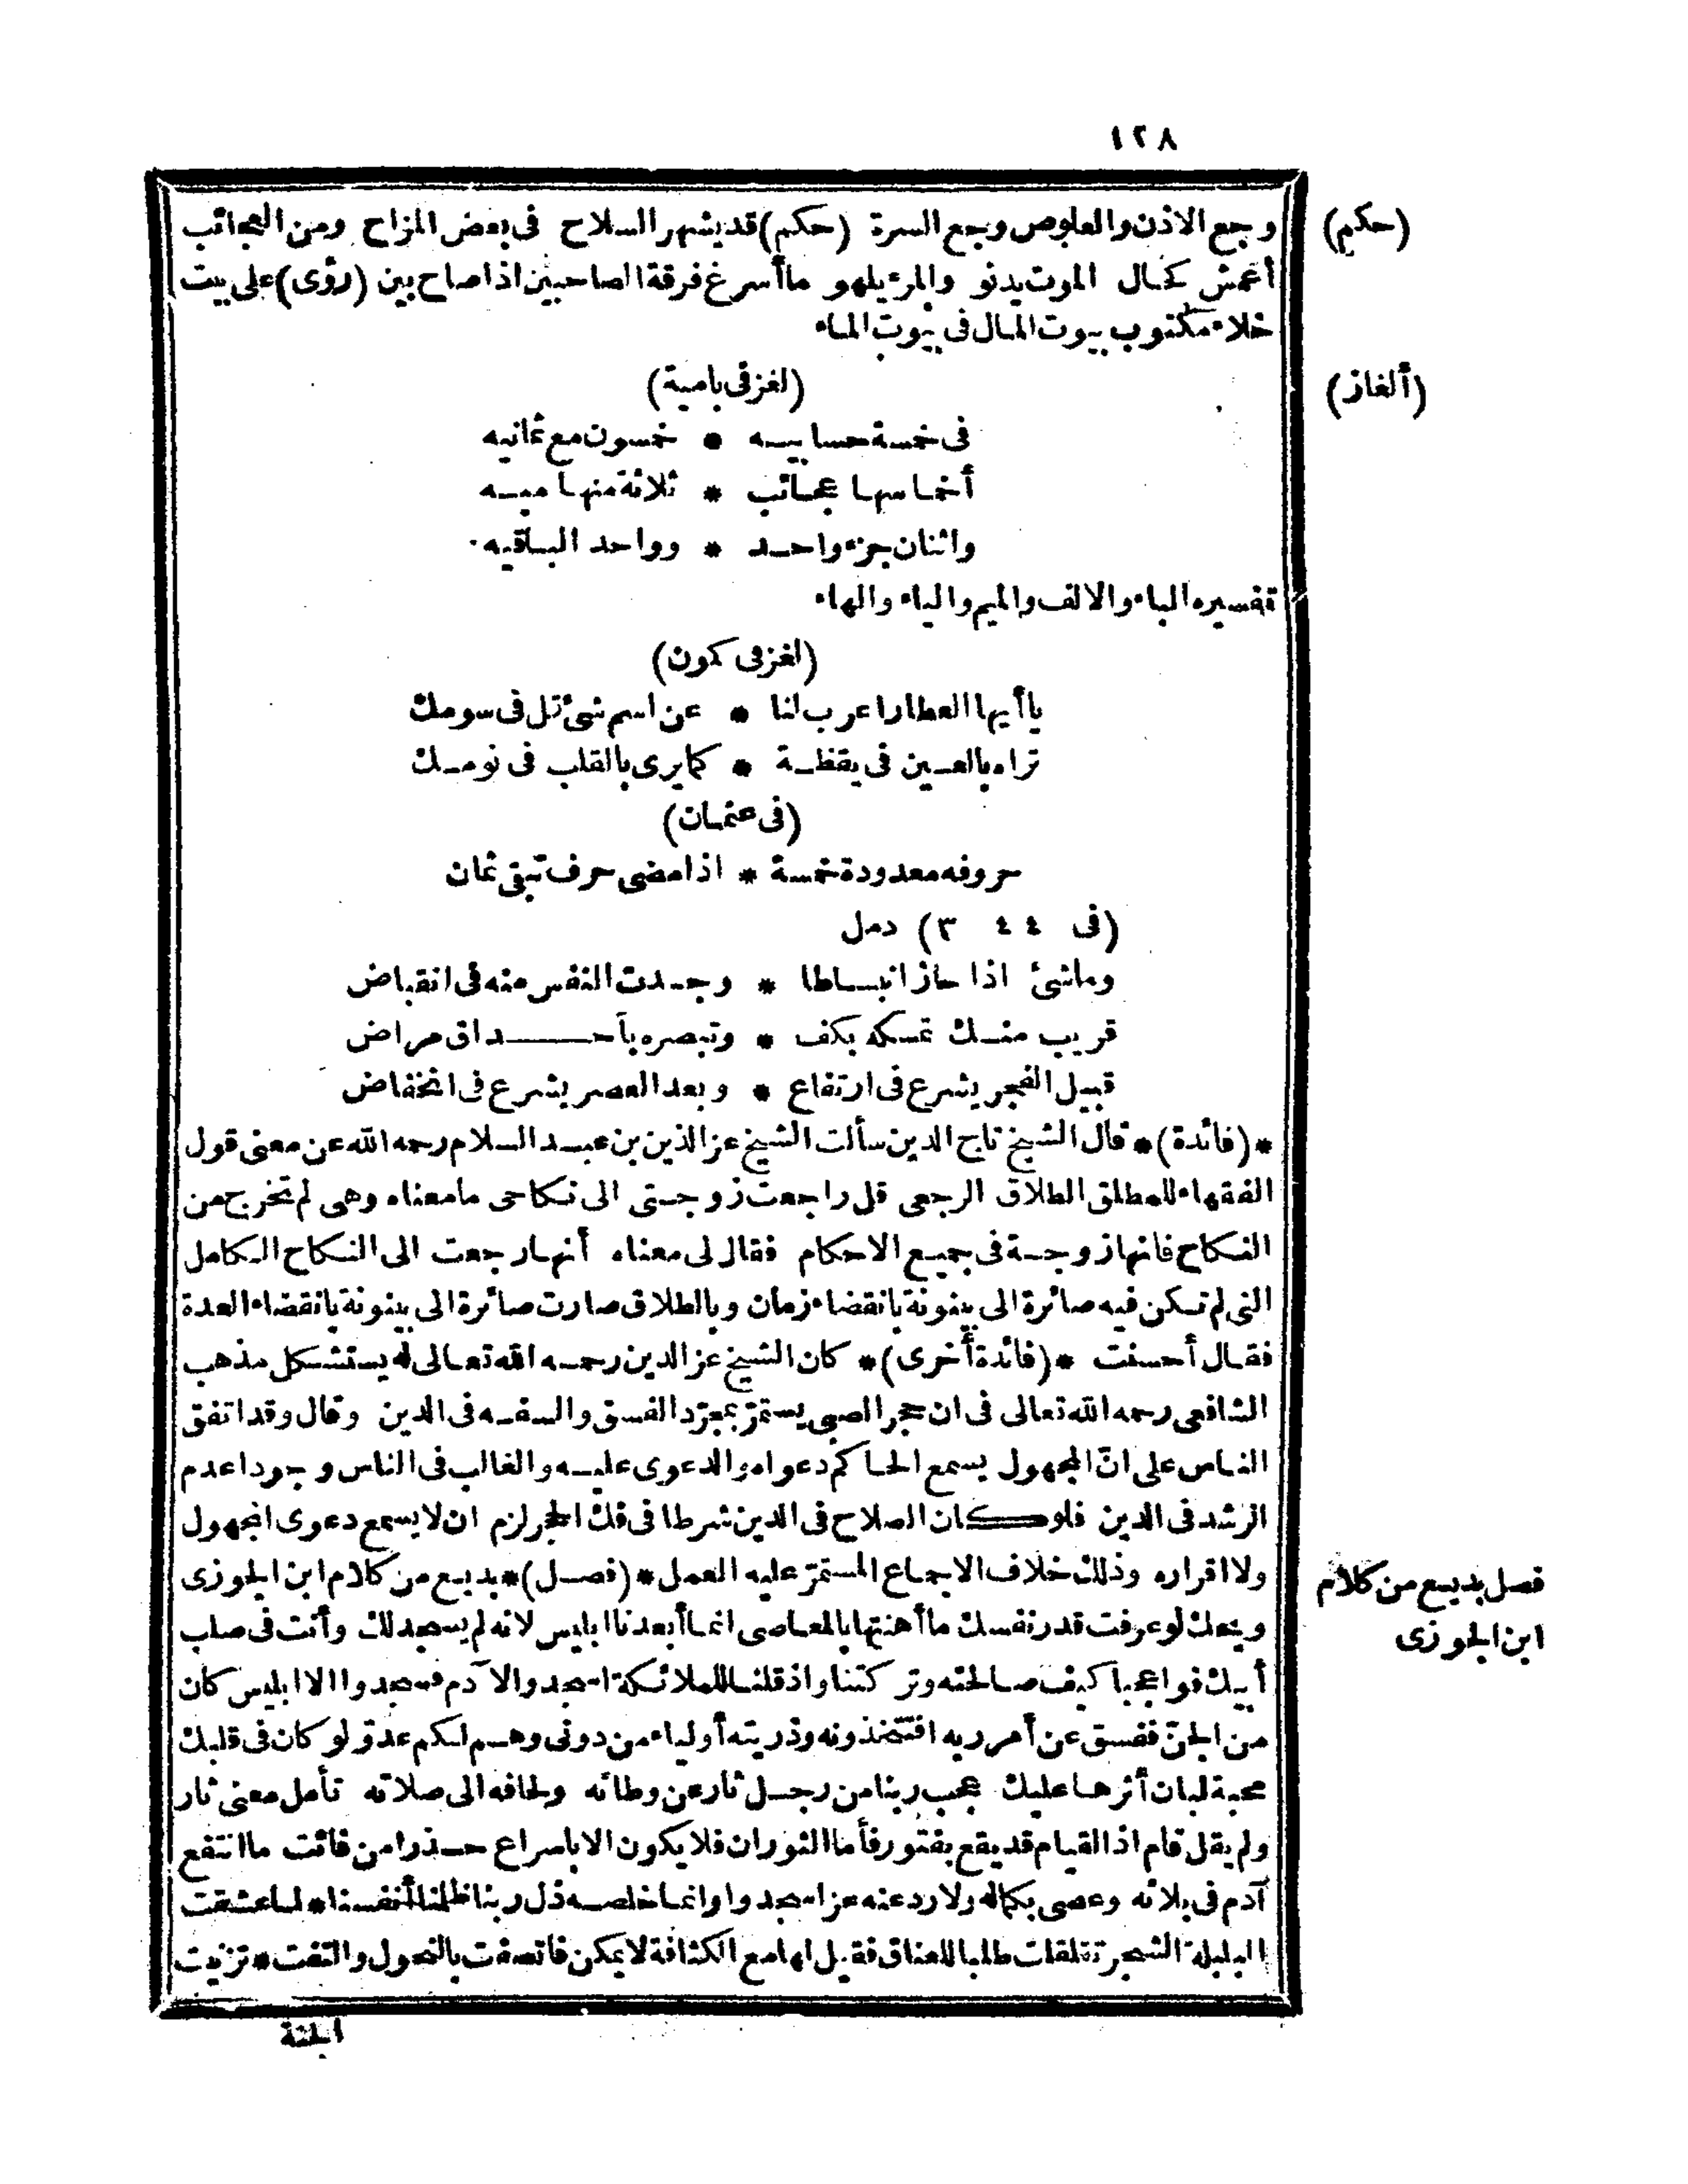 ١٢٨
(حكم)
وجع الاذن والعلوص وجع السرة (حكم) قد يشهر السلاح فى بعض المزاح ومن العجائب
أعمش كحال الموت يدنو والمرء يلهو ما أسرع فرقة الصاحبين اذا صاح بين (رؤى) على بيت
خلاء مكتوب بيوت المال فى بيوت الماء
(ألغاز)
(لغز فى بامية)
فى خمسة حسابيه * خمسون مع ثمانيه
أخماسها عجائب * ثلاثة منها ميه
واثنان جزء واحد * وواحد الباقيه
تفسيره الباء والالف والميم والياء والهاء
(لغز فى كمون)
يا أيها العطار اعرب لنا * عن اسم شئ قل فى سومك
تراه بالعين فى يقظة * كما يرى بالقلب فى نومك
(فى عثمان)
حروفه معدودة خمسة * اذا مضى حرف تبقى ثمان
(فى ٤٤ ٣) دمل
وما شئ اذا حاز انبساطا * وجدت النفس منه فى انقباض
قريب منك تمسكه بكف * وتبصره بأحداق مراض
قبيل الفجر يشرع فى ارتفاع * وبعد العصر يشرع فى انخفاض
*(فائدة)* قال الشيخ تاج الدين سألت الشيخ عز الدين بن عبد السلام رحمه الله عن معنى قول
الفقهاء للمطلق الطلاق الرجعى قل راجعت زوجتى الى نكاحى ما معناه وهى لم تخرج من
النكاح فانها زوجة فى جميع الاحكام فقال لى معناه أنها رجعت الى النكاح الكامل
التى لم تكن فيه صائرة الى بينونة بانقضاء زمان وبالطلاق صارت صائرة الى بينونة بانقضاء العدة
فقال أحسنت *(فائدة أخرى)* كان الشيخ عز الدين رحمه الله تعالى يستشكل مذهب
الشافعى رحمه الله تعالى فى ان حجر الصبى يستمرّ بمجرّد الفسق والسفه فى الدين وقال وقد اتفق
الناس على انّ المجهول يسمع الحاكم دعواه والدعوى عليه والغالب فى الناس وجود اعدم
الرشد فى الدين فلو كان الصلاح فى الدين شرطا فى فك الحجر لزم ان لا يسمع دعوى المجهول
ولا اقراره وذلك خلاف الاجماع المستمرّ عليه العمل *(فصل)* بديع من كلام ابن الجوزى
فصل بديع من كلام
ابن الجوزى
ويحك لو عرفت قدر نفسك ما أهنتها بالمعاصى انما أبعدنا ابليس لانه لم يسجد لك وأنت فى صلب
أبيك فواعجبا كيف صالحته وتركتنا واذ قلنا للملائكة اسجدوا لآدم فسجدوا الا ابليس كان
من الجنّ ففسق عن أمر ربه افتتخذونه وذريته أولياء من دونى وهم لكم عدوّ لو كان فى قلبك
محبة لبان أثرها عليك عجب ربنا من رجل ثار عن وطائه ولحافه الى صلاته تأمل معنى ثار
ولم يقل قام اذ القيام قد يقع بفتور فأما الثوران فلا يكون الا باسراع حذرا من فائت ما انتفع
آدم فى بلائه وعصى بكماله ولا ردعنه عز اسجدوا وانما خلصه ذل ربنا ظلمنا أنفسنا * لما عشقت
البلبلة الشجر تقلقلت طلبا للعناق فقيل لها مع الكثافة لا يمكن فاتصفت بالنحول والتفت * تزينت
الجنة